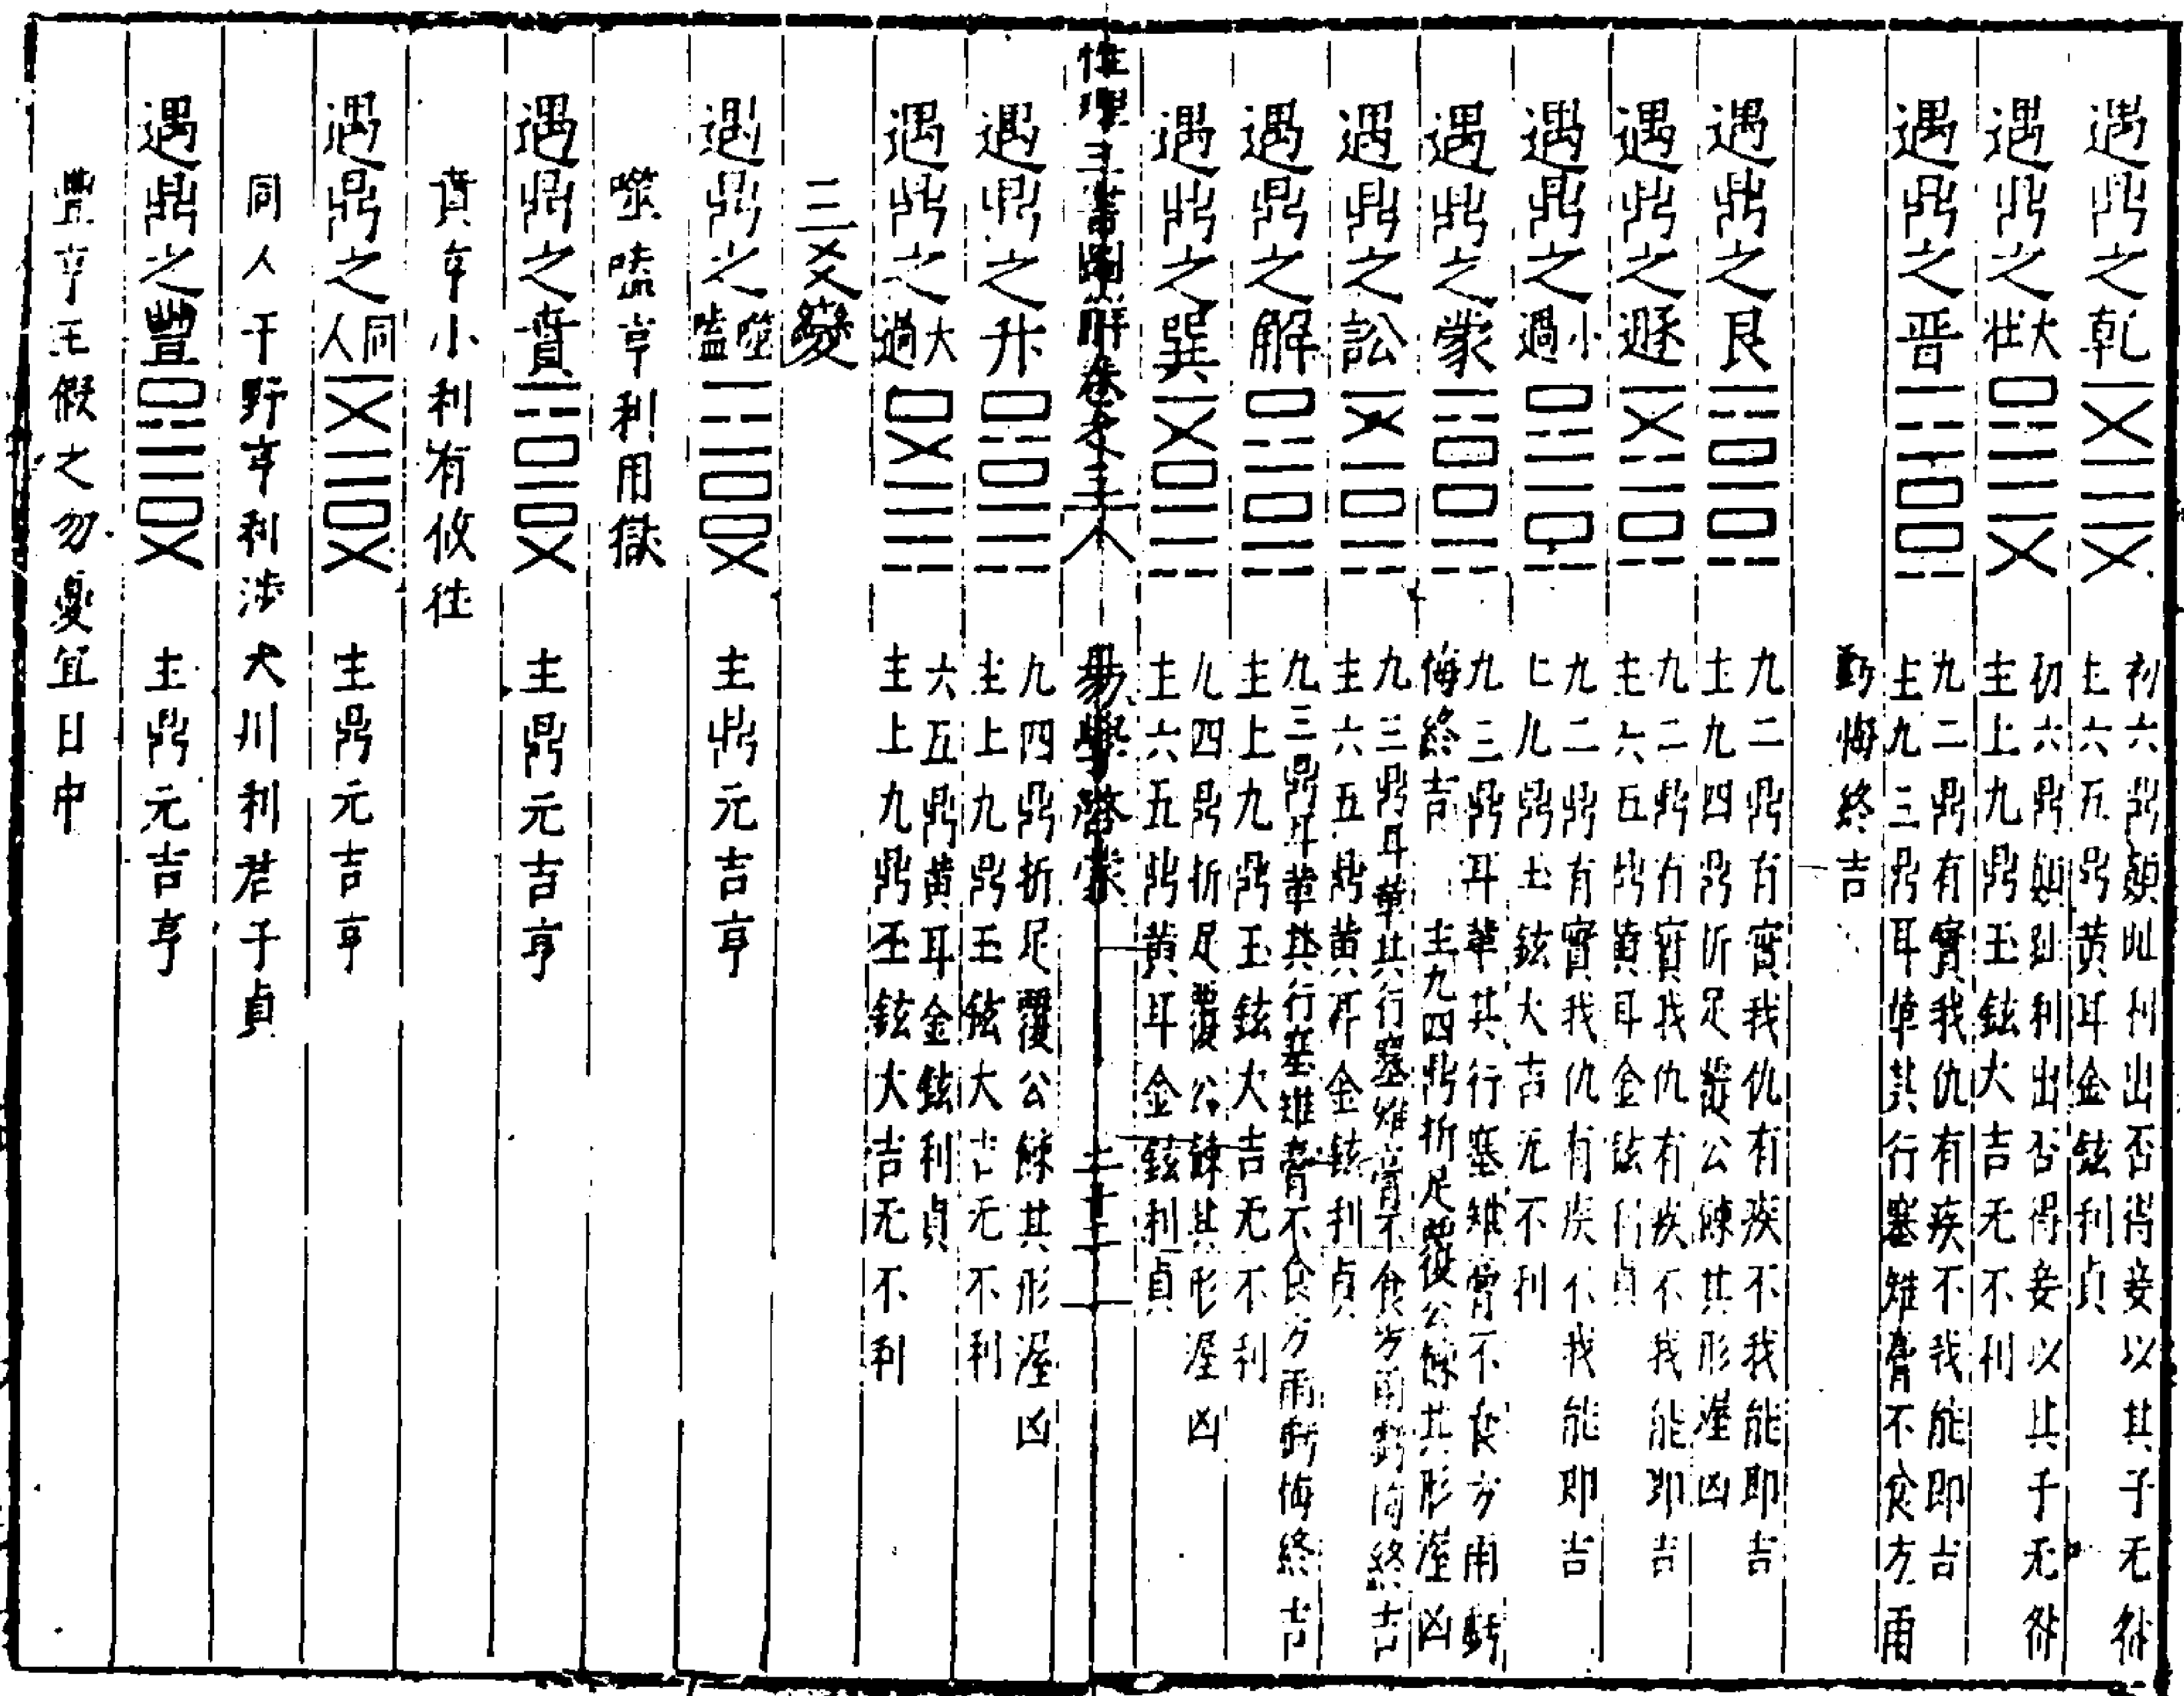 遇鼎之乾
初六鼎顛趾利出否得妾以其子无咎
主六五鼎黃耳金鉉利貞
遇鼎之大壯
初六鼎顛趾利出否得妾以其子无咎
主上九鼎玉鉉大吉无不利
遇鼎之晋
九二鼎有實我仇有疾不我能即吉
主九三鼎耳革其行塞雉膏不食方雨
虧悔終吉
遇鼎之艮
九二鼎有實我仇有疾不我能即吉
主九四鼎折足覆公餗其形渥凶
遇鼎之遯
九二鼎有實我仇有疾不我能即吉
主六五鼎黃耳金鉉利貞
遇鼎之小過
九二鼎有實我仇有疾不我能即吉
上九鼎玉鉉大吉无不利
遇鼎之蒙
九三鼎耳革其行塞雉膏不食方雨虧
悔終吉 主九四鼎折足覆公餗其形渥凶
遇鼎之訟
九三鼎耳革其行塞雉膏不食方雨虧悔終吉
主六五鼎黃耳金鉉利貞
遇鼎之解
九三鼎耳革其行塞雉膏不食方雨虧悔終吉
主上九鼎玉鉉大吉无不利
遇鼎之巽
九四鼎折足覆公餗其形渥凶
主六五鼎黃耳金鉉利貞
性理三書圖解卷之三十八 易學啓蒙 二十三
遇鼎之升
九四鼎折足覆公餗其形渥凶
主上九鼎玉鉉大吉无不利
遇鼎之大過
六五鼎黃耳金鉉利貞
主上九鼎玉鉉大吉无不利
三爻變
遇鼎之噬嗑 主鼎元吉亨
噬嗑亨利用獄
遇鼎之賁 主鼎元吉亨
賁亨小利有攸往
遇鼎之同人 主鼎元吉亨
同人于野亨利涉大川利君子貞
遇鼎之豐 主鼎元吉亨
豐亨王假之勿憂宜日中